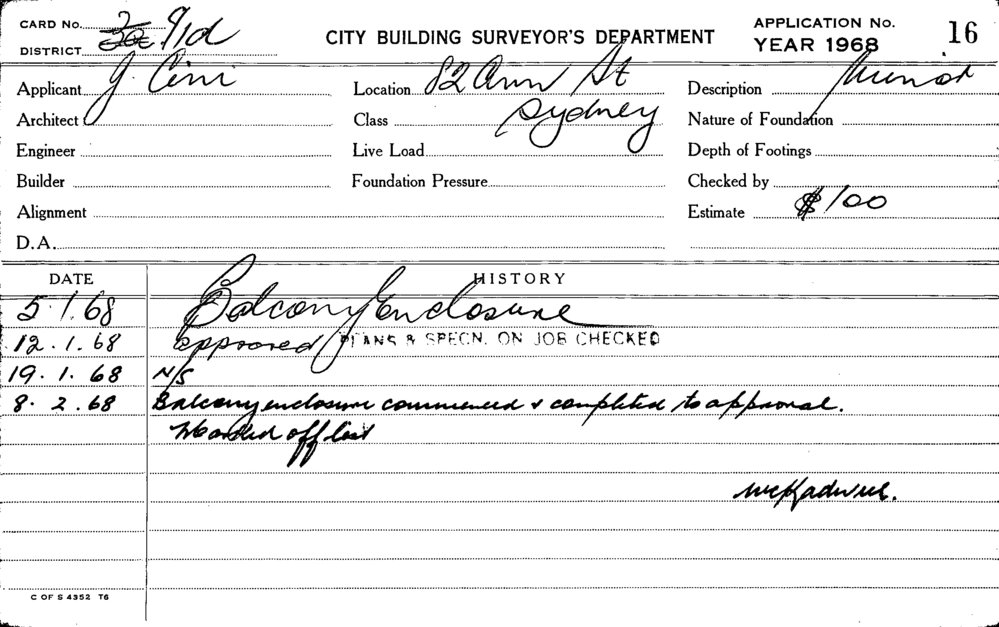 CARD No. 2
DISTRICT
CITY BUILDING SURVEYOR'S DEPARTMENT
APPLICATION No. 16
YEAR 1968
Applicant J. Cini
Location 82 Ann St
Description Minor
Architect
Class Sydney
Nature of Foundation
Engineer
Live Load
Depth of Footings
Builder
Foundation Pressure
Checked by
Alignment
Estimate $100
D.A.
DATE HISTORY
5.1.68 Balcony Enclosure
12.1.68 approved PLANS & SPECN. ON JOB CHECKED
19.1.68 N/S
8.2.68 Balcony enclosure commenced & completed to approval.
off list
C OF S 4352 T6